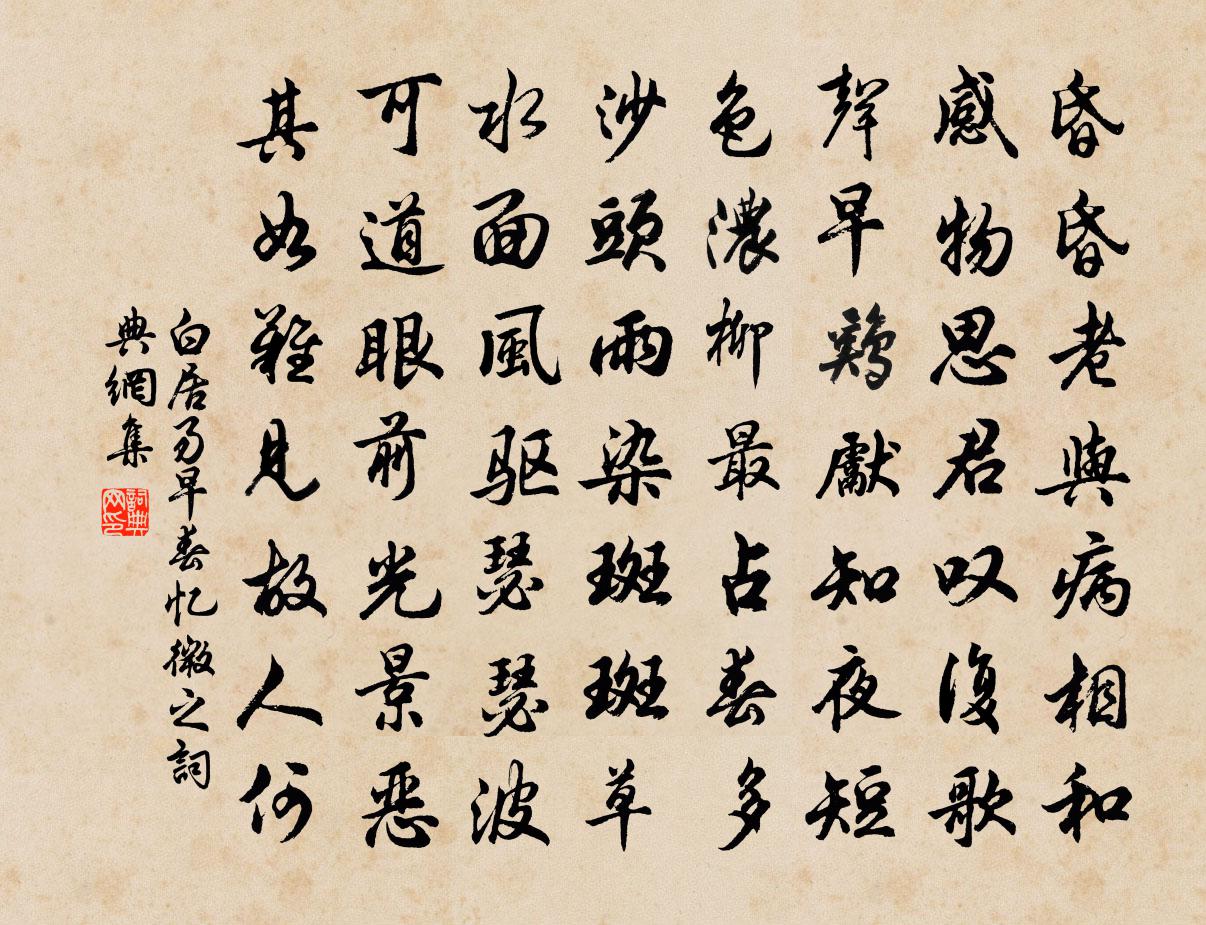 昏昏老與病相和
感物思君叹復歌
聲早鷄獻知夜短
色濃柳最占春多
沙頭雨染斑斑草
水面風驱瑟瑟波
可道眼前光景恶
其如難見故人何
白居易早春忆微之詞
典網集
詞典网印